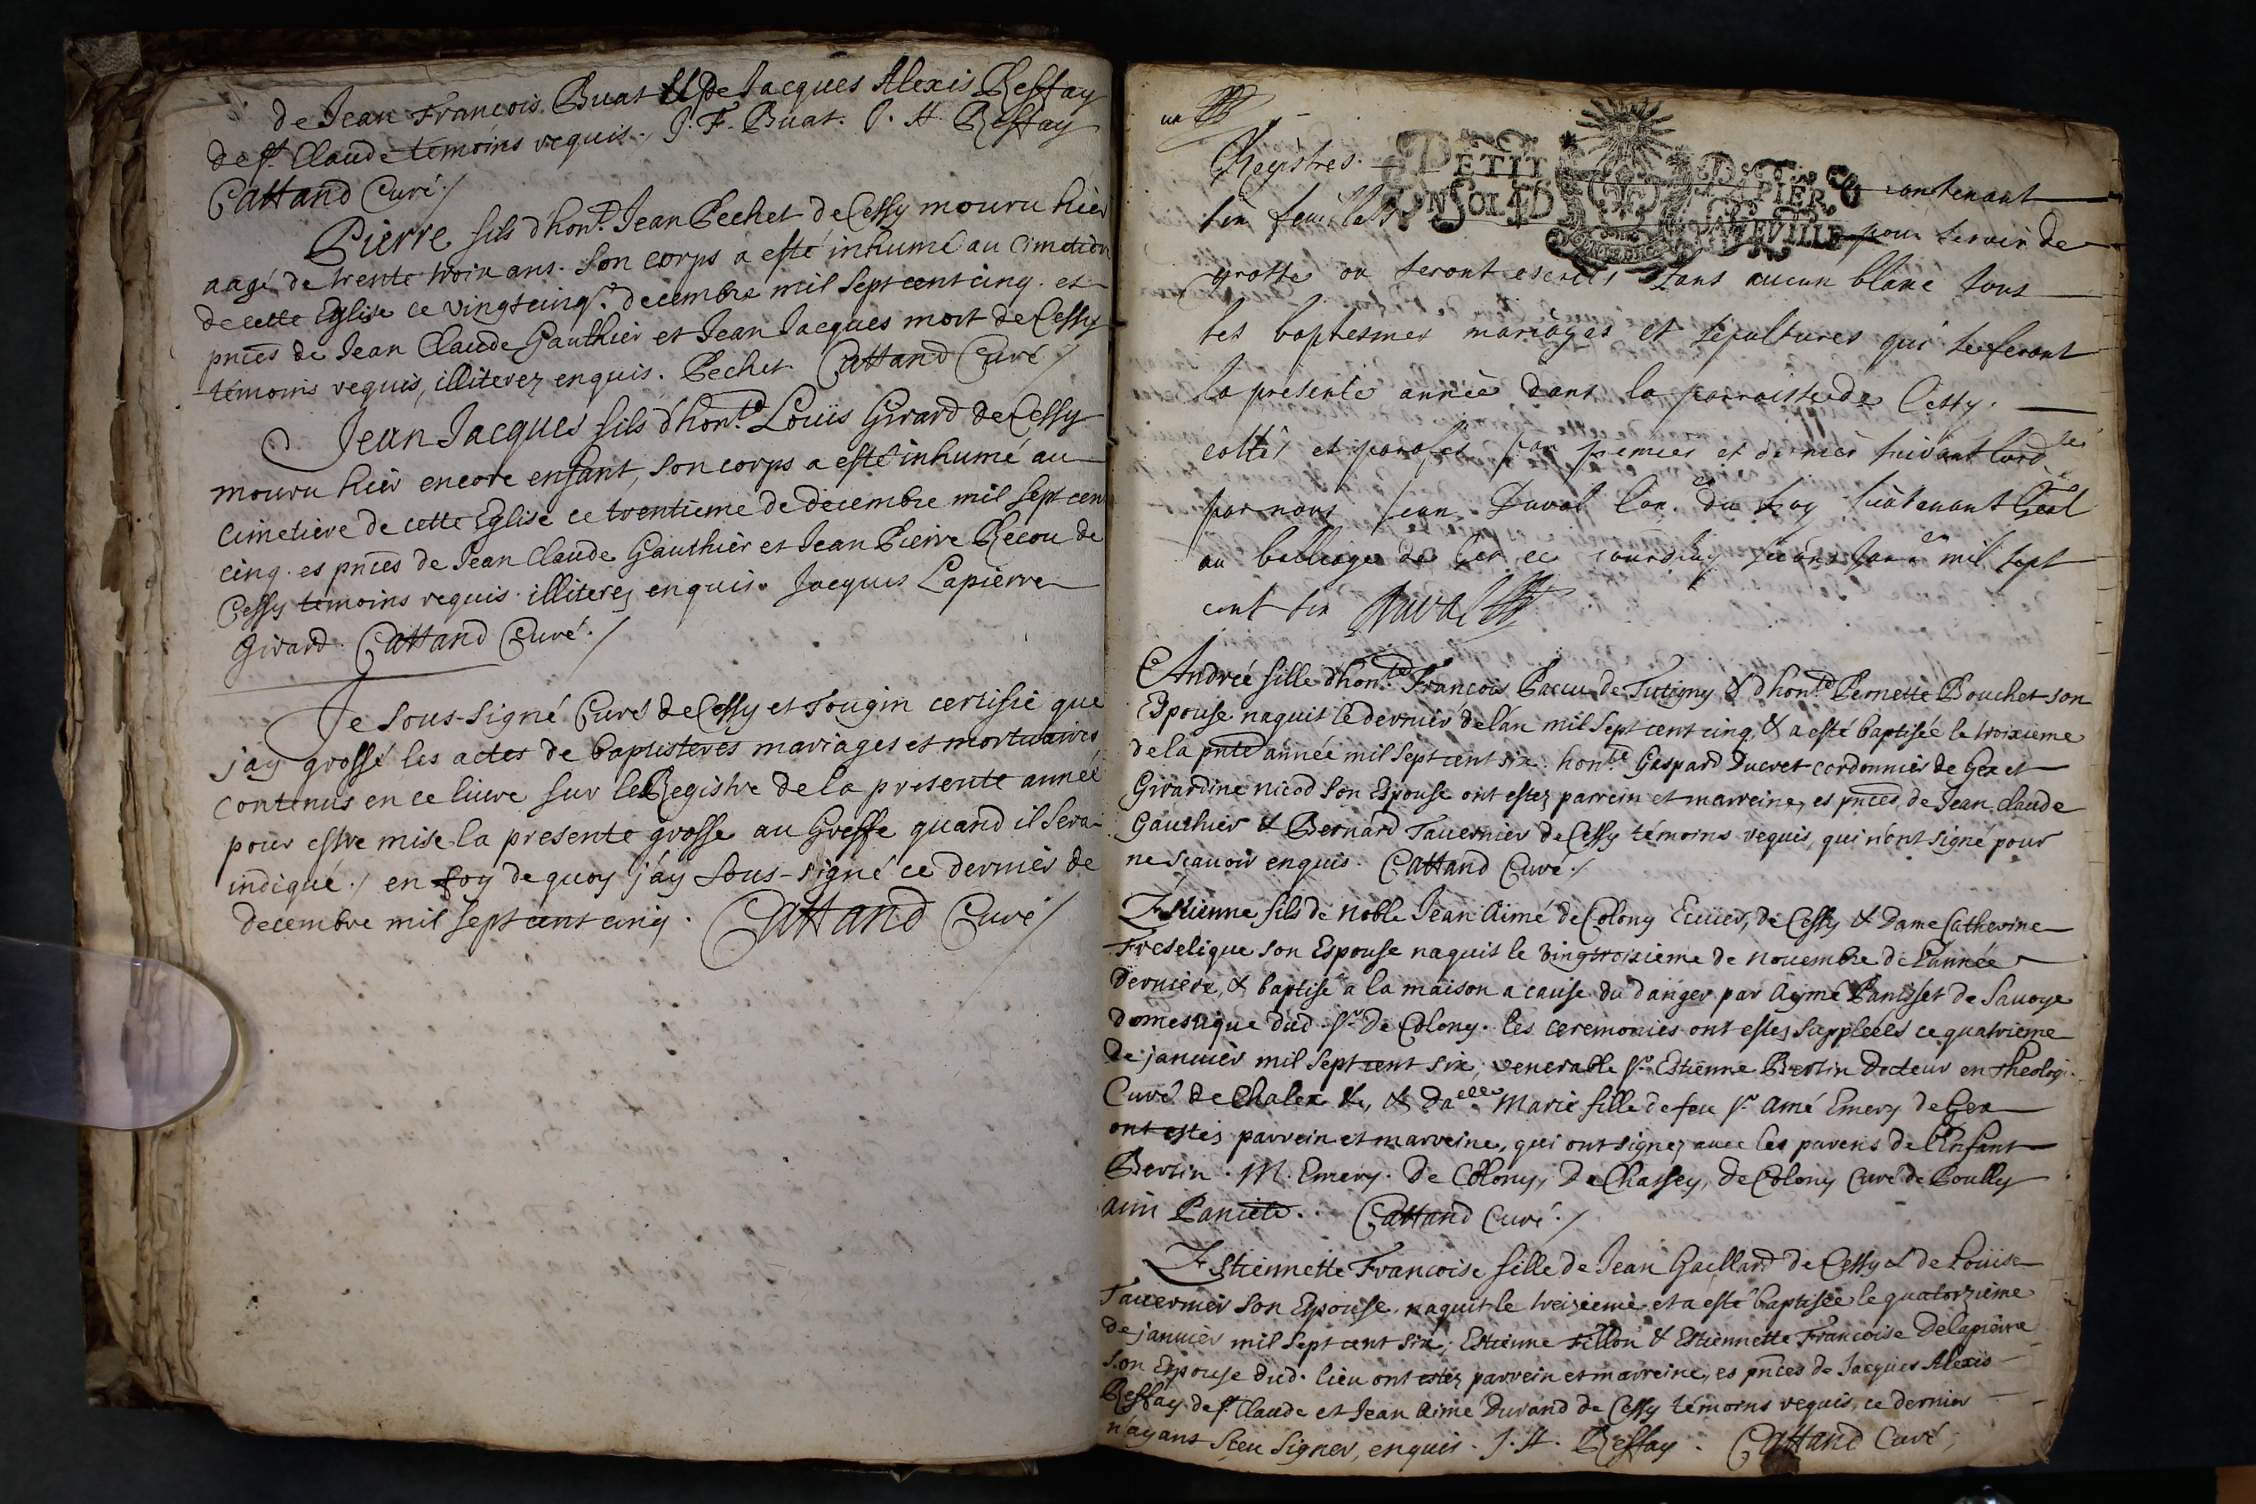 de Jean Francois Buat & de Jacques Alexis Reffay
de st. Claude temoins requis. J. F. Buat. J. A Reffay
Cattand Curé ./
Pierre fils d'hont. Jean Pechet de Cessy mouru hier
aagé de trente trois ans. Son corps a esté inhumé au Cimetiere
de cette Eglise ce vingtcinqe. decembre mil sept cent cinq. es
pnces de Jean Claude Gauthier et Jean Jacques mort de Cessy
témoins requis, illiterez enquis. Pechet Cattand Curé /
Jean Jacques fils d'hont. Louïs Girard de Cessy
mouru hier encore enfant, Son corps a esté inhumé au
Cimetiere de cette Eglise ce trentieme de decembre mil sept cent
cinq. es pnces de Jean Claude Gauthier et Jean Pierre Recou de
Cessy temoins requis. illiterez enquis. Jacques Lapierre
Girard. Cattand Curé ./
Je Sous-signé Curé de Cessy et Tougin certifie que
j'ay grossé les actes de baptisteres mariages et mortuaires
contenus en ce livre sur le Registre de la presente année
pour estre mise la presente grosse au Greffe quand il sera
indiqué ./ en foy de quoy j'ay Sous-signé ce dernier de
decembre mil sept cent cinq. Cattand Curé /
un
Registres. PETIT PAPIER contenant
six feuillets EN SOL 4D pour servir de
grosse ou seront escrits sans aucun blanc tous
les baptesmes mariages et sepultures qui se feront
la presente année dans la parroisse de Cessy.
cottés et parafes par premier et dernier suivant lord
par nous Jean Duval Con. du Roy lieutenant Gnal
au balliage de Gex ce jourdhuy mil sept
cent six Duval
Andrée fille d'honte. Francois Paccu de Tutigny & d'honte. Pernette Bouchet son
Epouse naquit le dernier de l'an mil sept cent cinq, & a esté baptisée le troixieme
de la pnte année mil sept cent six. honte. Gaspard Ducret cordonnier de Gex et
Girardine nicod son Espouse ont estez parrein et marreine, es pnces, de Jean Claude
Gauthier & Bernard Tavernier de Cessy témoins requis, qui n'ont signé pour
ne scavoir enquis. Cattand Curé ./
Estienne fils de Noble Jean Aimé de Colony Ecuier, de Cessy & Dame Catherine
Freselique son Espouse naquit le vingtroisieme de novembre de l'année
derniere, & baptisé a la maison a cause du danger par Aymé Panisset de Savoye
domestique dud. sr. De Colony. les ceremonies ont estez suppléées ce quatrieme
de janvier mil sept cent six, venerable sr. Estienne Bertin Docteur en Theologi.
Curé de Chalex &, & Dalle Marie fille de feu sr. Amé Emery de Gex
ont estés parrein et marreine, qui ont signez avec les parens de l'Enfant
Bertin. M. Emery. De Colony, De Chassey, de Colony Curé de Poully
aimi Paniete. Cattand Curé ./
Estiennette Francoise fille de Jean Gaillard de Cessy & de Louïse
Tavernier son Espouse naquit le treizieme et a esté baptisée le quatorzieme
de janvier mil sept cent six, Estienne Fillon & Estiennette Francoise Delapierre
son Espouse dud. lieu ont estéz parrein et marreine, es pnces de Jacques Alexis
Reffay de st. Claude et Jean Aimé Durand de Cessy témoins requis, ce dernier
n'ayant sceu signer, enquis. J. A. Reffay. Cattand Curé